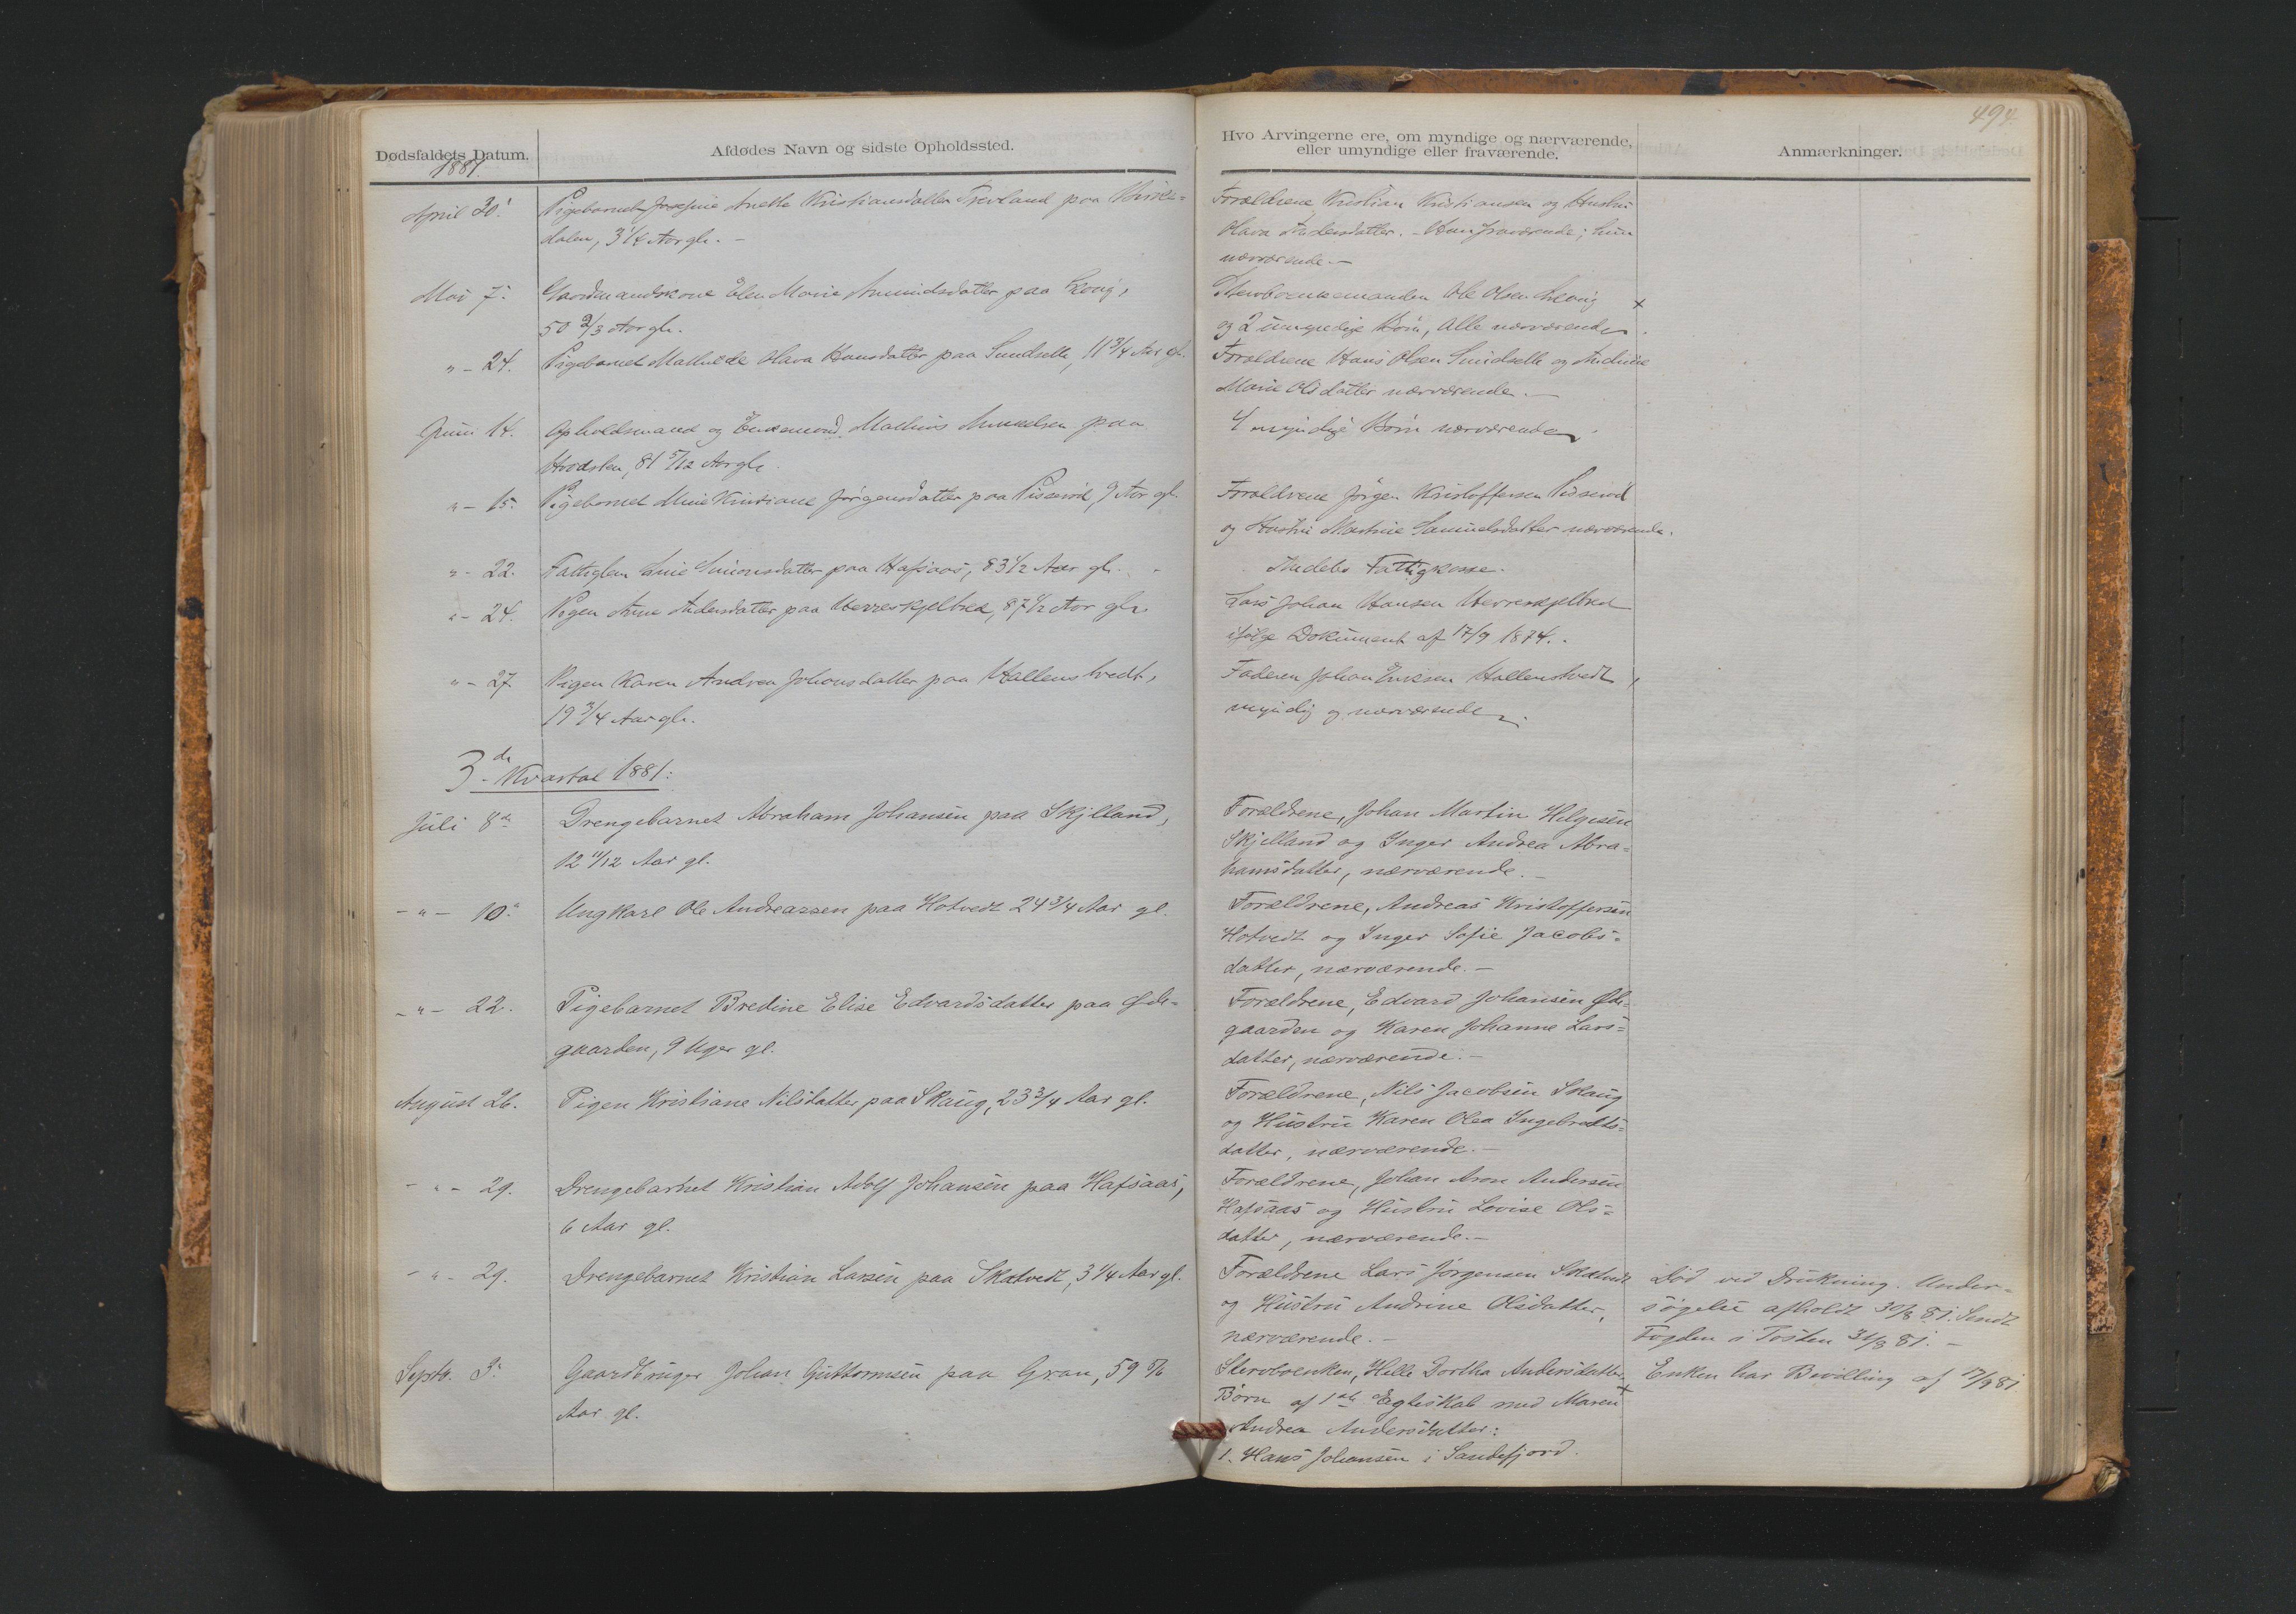 494
Dødsfaldets Datum.
1881.
Afdødes Navn og sidste Opholdssted.
Hvo Arvingerne ere, om myndige og nærværende,
eller umyndige eller fraværende.
Anmærkninger.
April 30.
Pigebarnet Josefine Anette Kristiansdatter paa
dalen, 3 1/4 Aar gl. -
Forældrene Kristian Kristiansen og Hustru
Olava Andersdatter. - Han fraværende; hun
nærværende. -
Mai 7.
Gaardmandskone Elen Marie Amundsdatter paa
50 2/3 Aar gl.
Sterbboenkemanden Ole Olsen x
og 2 umyndige Børn, Alle nærværende.
" - 24.
Pigebarnet Mathilde Olava Hansdatter paa Sundsette, 11 3/4 Aar gl.
Forældrene Hans Olsen Sundsette og Andrine
Marie Olsdatter nærværende. -
Juni 14.
Opholdsmand og Enkemand Mathias paa
81 5/12 Aar gl.
4 myndige Børn nærværende.
" - 15.
Pigebarnet Kristiane Jørgensdatter paa Pisserød, 9 Aar gl.
Forældrene Jørgen Kristoffersen Pisserød
og Hustru Martine Samuelsdatter nærværende.
" - 22.
Fattiglem Simonsdatter paa Hafsaas, 83 1/2 Aar gl. -
Andebo Fattigkasse.
" - 24.
Pigen Anne Andersdatter paa Herreskjelbred, 87 1/2 Aar gl.
Lars Johan Hansen Herreskjelbred
ifølge Dokument af 17/9 1874.
" - 27
Pigen Karen Andrea Johansdatter paa Hallenstvedt,
19 3/4 Aar gl.
Faderen Johan Eriksen Hallenstvedt,
myndig og nærværende.
3de Kvartal 1881:
Juli 8de
Drengebarnet Abraham Johansen paa Skjelland,
12 11/12 Aar gl.
Forældrene, Johan Martin Helgesen
Skjelland og Inger Andrea Abra=
hamsdatter, nærværende. -
- " - 10.
Ungkarl Ole Andreassen paa Hotvedt 24 3/4 Aar gl.
Forældrene, Andreas Kristoffersen
Hotvedt og Inger Sofie Jacobs=
datter, nærværende. -
- " - 22.
Pigebarnet Bredine Elise Edvardsdatter paa Øde=
gaarden, 9 Uger gl.
Forældrene, Edvard Johansen Øde=
gaarden og Karen Johanne Lars=
datter, nærværende. -
August 26.
Pigen Kristiane Nilsdatter paa Skaug, 23 3/4 Aar gl.
Forældrene, Nils Jacobsen Skaug
og Hustru Karen Olea Ingebretts=
datter, nærværende. -
- " - 29.
Drengebarnet Kristian Adolf Johansen paa Hafsaas,
6 Aar gl.
Forældrene, Johan Aron Andersen
Hafsaas og Hustru Lovise Ols=
datter, nærværende. -
- " - 29.
Drengebarnet Kristian Larsen paa Skatvedt, 3 1/4 Aar gl.
Forældrene Lars Jørgensen Skatvedt
og Hustru Andrine Olsdatter,
nærværende. -
Død ved Drukning. Under=
søgelse afholdt 30/8 81. Sendt
Fogden i Tosten 31/8 81. -
Septb. 3.
Gaardbruger Johan Guttormsen paa Gran, 59 5/6
Aar gl.
Sterbboenken, Helle Dorthea Andersdatter
Børn af 1ste Egteskab med Maren x
Andrea Andersdatter:
1. Hans Johansen i Sandefjord.
Enken har Bevilling af 17/9 81